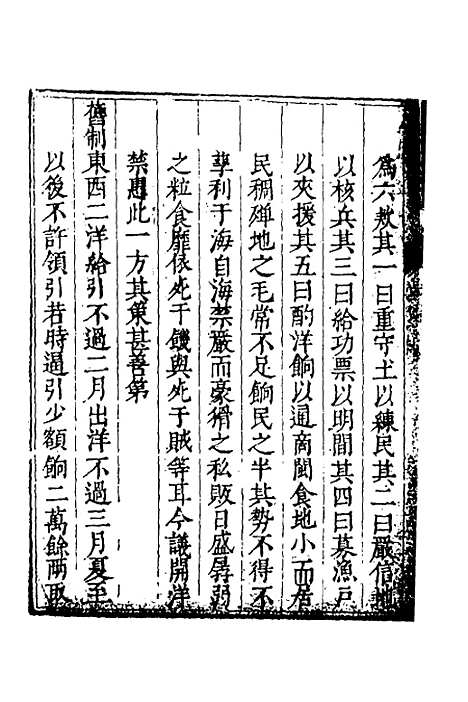 爲六敖其一曰重守土以練民其二曰嚴信地
以核兵其三曰給功票以明間其四曰募漁戸
以夾援其五曰酌洋餉以通商閩食地小而居
民稠殫地之毛常不足餉民之半其勢不得不
孳利于海自海禁嚴而豪猾之私販日盛孱弱
之粒食靡依死于饑與死于賊等耳今議開洋
禁惠此一方其策甚善第
舊制東西二洋給引不過二月出洋不過三月夏至
以後不許領引若時過引少額餉二萬餘兩取